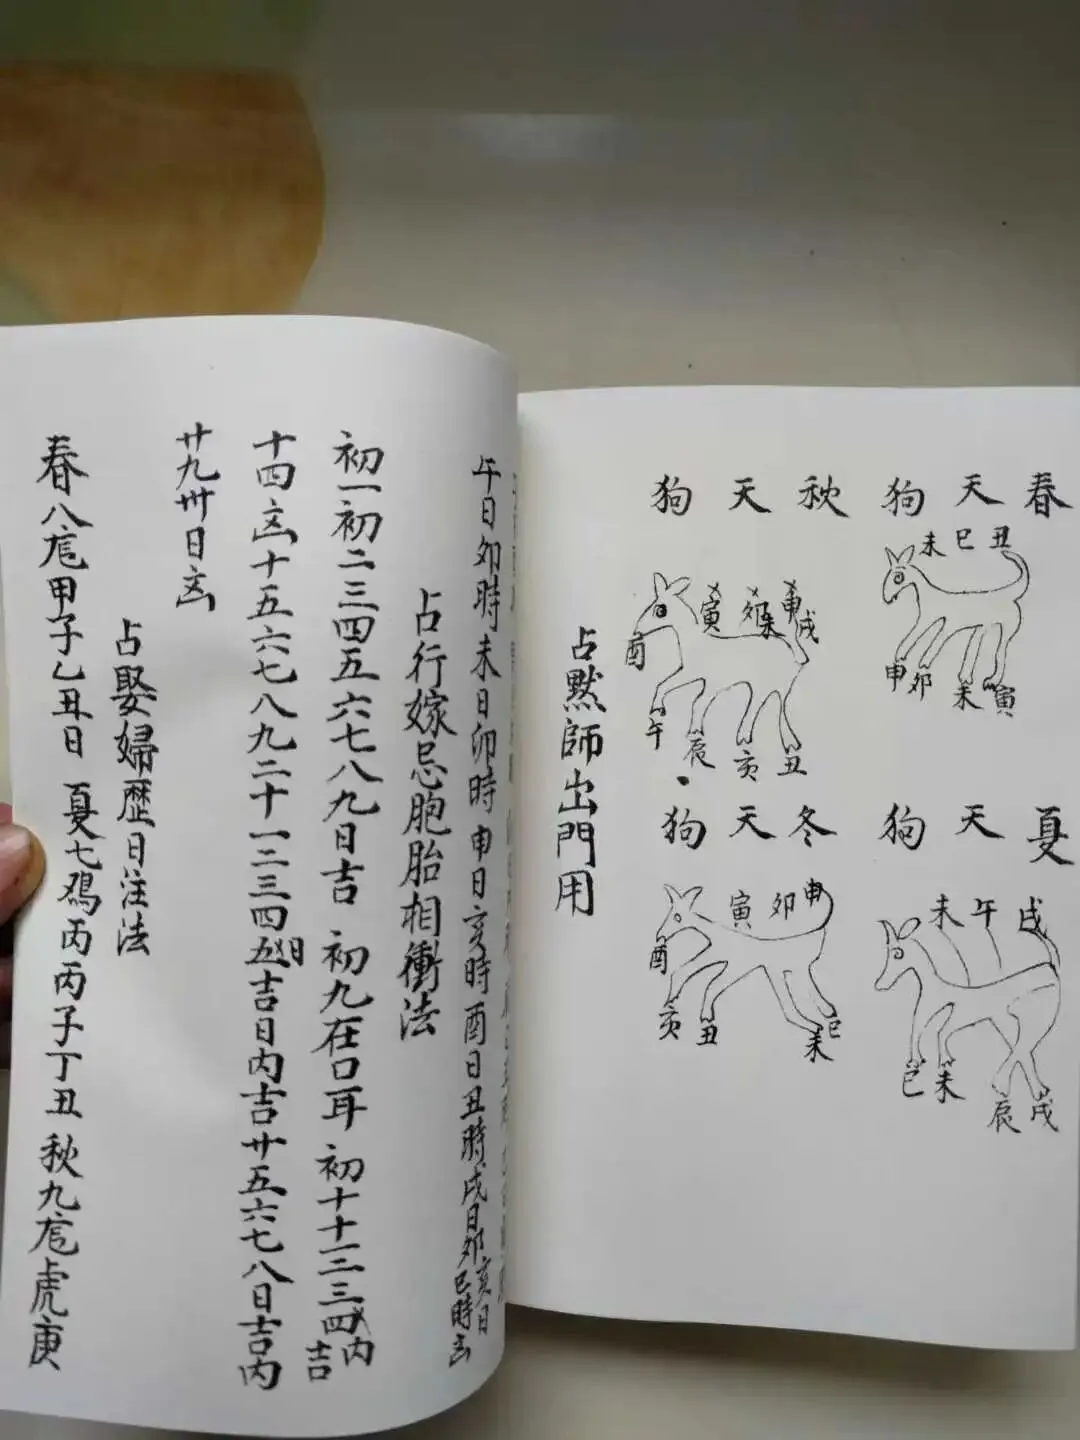 春天狗
未巳丑
申卯未寅
秋天狗
寅卯未申戌
酉
午辰亥丑
夏天狗
未午戌
巳未辰戌
冬天狗
寅卯申
酉
亥丑未巳
占默師出門用
午日卯時未日卯時申日亥時酉日丑時戌日卯亥日巳時凶
占行嫁忌胞胎相衝法
初一初二三四五六七八九日吉 初九在口耳 初十十一二三四内吉
十四凶十五六七八九二十一二三四五日吉日内吉廿五六七八日吉内
廿九卅日凶
占娶婦歷日注法
春八危甲子乙丑日 夏七鴉丙丙子丁丑 秋九危虎庚